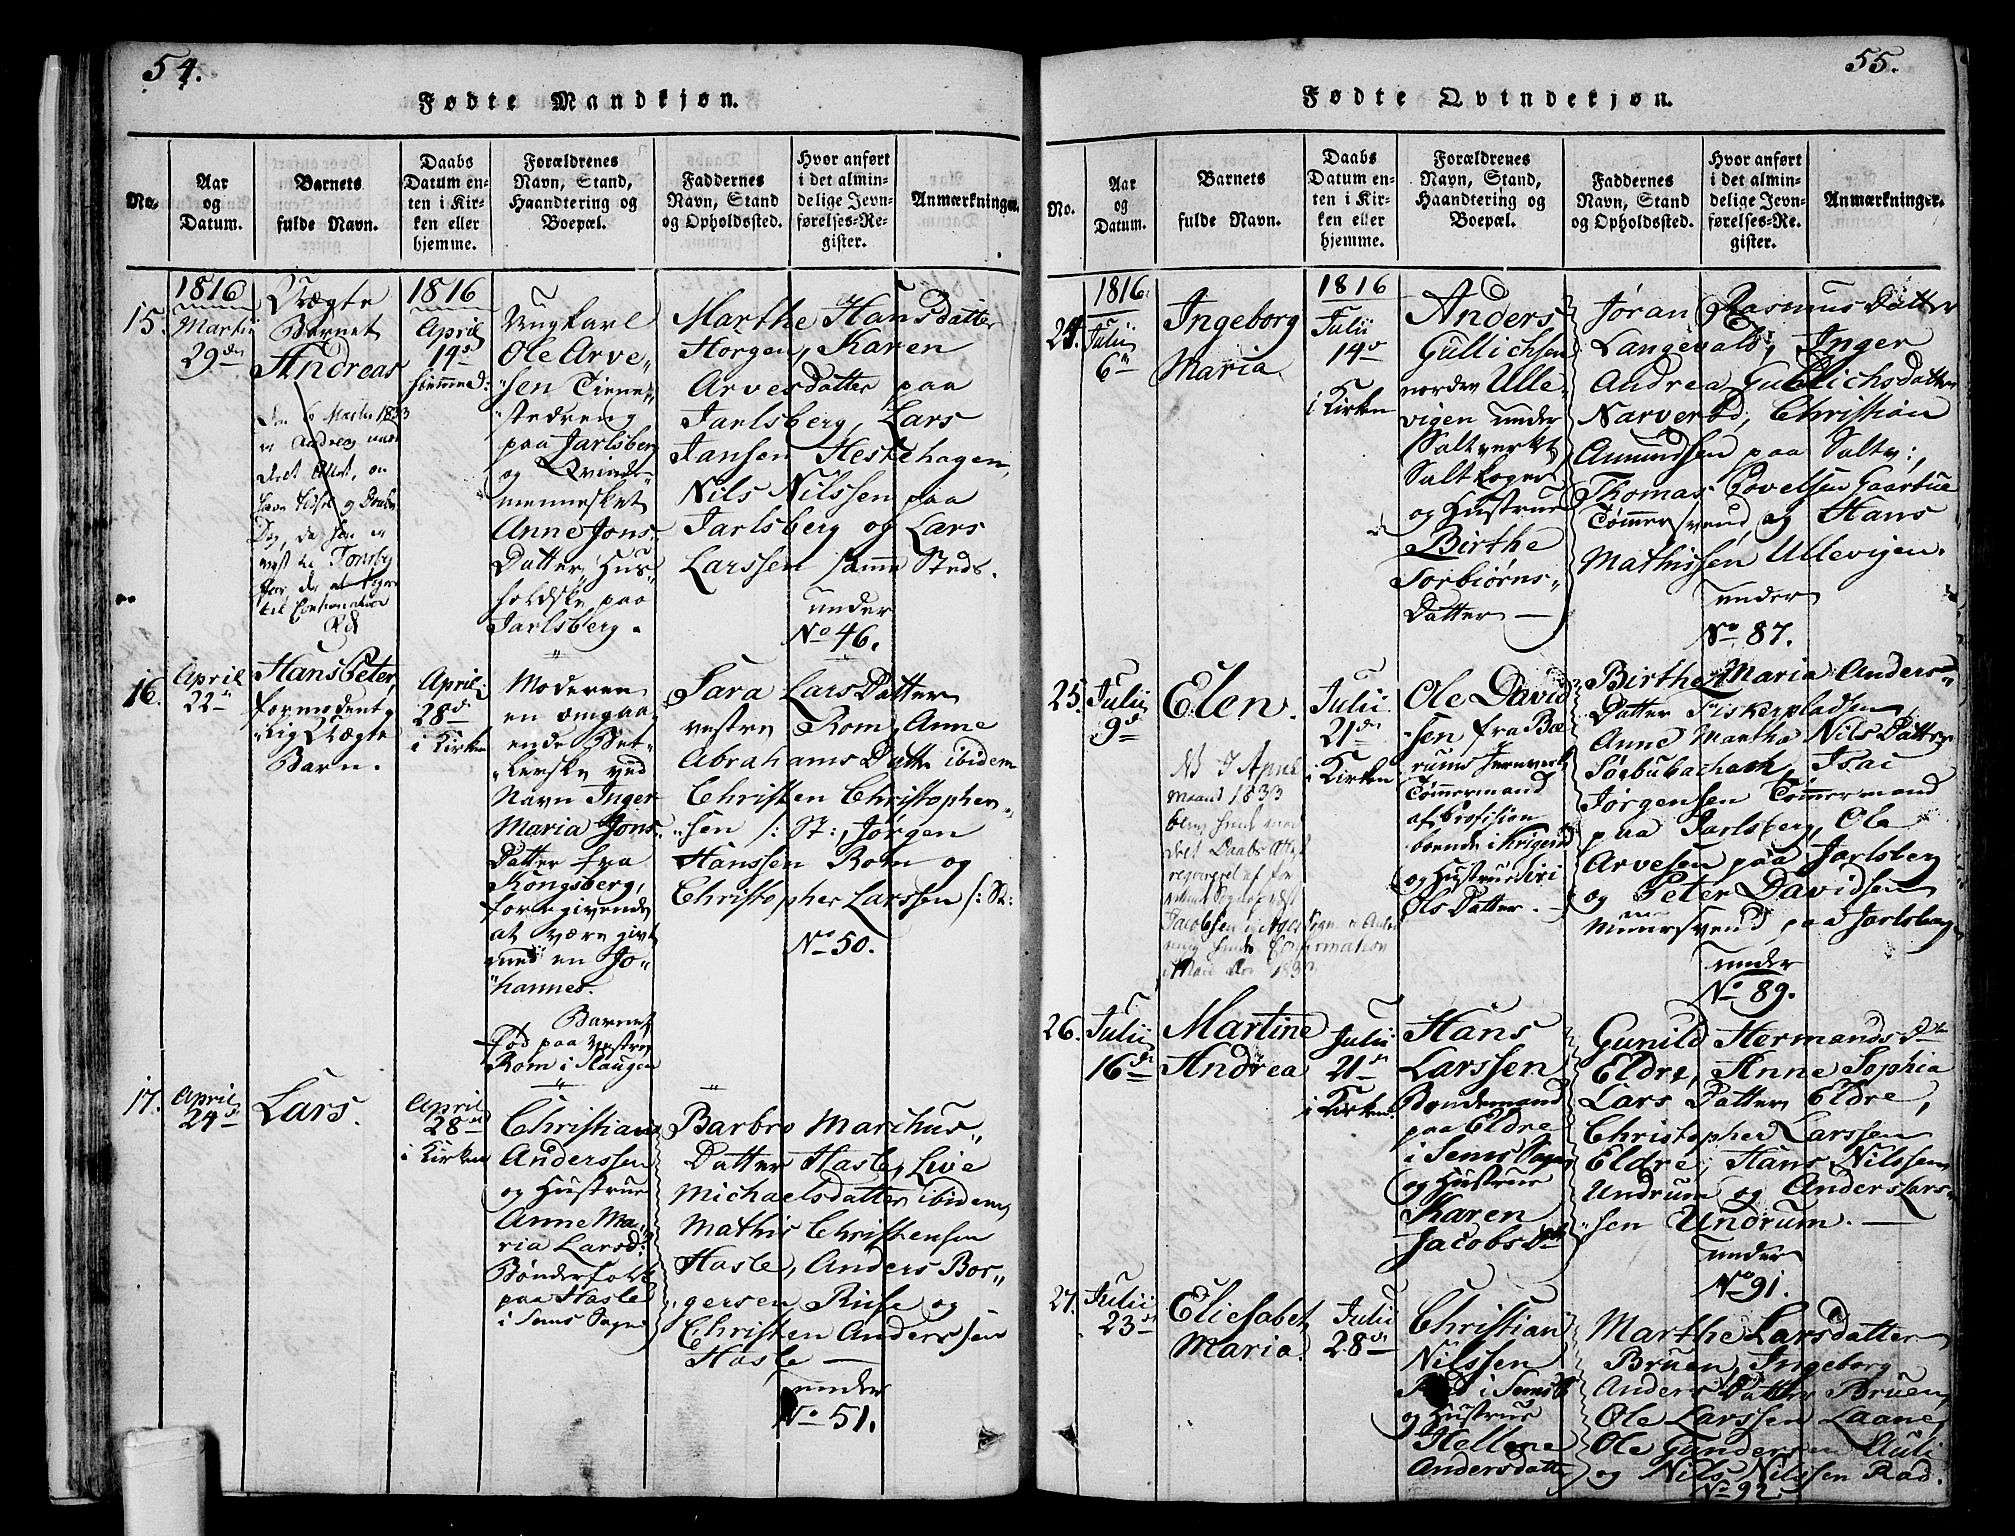 54.
Fødte Mandkjøn.
No.
Aar
og
Datum.
Barnets
fulde Navn.
Daabs
Datum en-
ten i Kir-
ken eller
hjemme.
Forældrenes
Navn, Stand,
Haandtering og
Boepæl.
Faddernes
Navn, Stand
og Opholdssted.
Hvor anført
i det almin-
delige Jevn-
førelses-Re-
gister.
Anmærkninger.
15.
1816
Martii
29de
Uægte
Barnet
Andreas
1816
April
14de
hiemmed:
Ungkarl
Ole Arve-
sen Tiene-
stedreng
paa Jarlsberg
og Qvinde-
mennesket
Anne Jons-
Datter, Hus-
holdske paa
Jarlsberg.
Marthe Hansdatter
Horgen, Karen
Arvesdatter paa
Jarlsberg, Lars
Jansen Hestehagen,
Nils Nilssen paa
Jarlsberg og Lars
Larssen samme Steds.
under
No 46.
16.
April
22de
Hans Peter,
formodent-
lig Uægte
Barn.
April
28de
i Kirken
Moderen
en omgaa-
ende Bet-
lerske ved
Navn Inger
Maria Jons-
Datter fra
Kongsberg,
foregivende
at være givt
med en Jo-
hannes.
Barnet
fød paa vestre
Rom i Haugen
Sara LarsDatter
vestre Rom, Anne
AbrahamsDatter ibidem
Christen Christopher-
sen /: St:, Jørgen
Hanssen Rom og
Christopher Larssen /: St:
No 50.
17.
April
24de
Lars.
April
28de
i Kirken
Christian
Anderssen
og Hustrue
Anne Ma-
ria Larsd:
Bønderfolk
paa Hasle
i Sems Sogn
Barbro Marchus-
Datter Hasle, Live
Michaelsdatter ibidem,
Mathis Christensen
Hasle, Anders Bor-
gersen, Riise og
Christen Anderssen
Hasle
under
No 51.
55.
Fødte Qvindekjøn.
No.
Aar
og
Datum.
Barnets
fulde Navn.
Daabs
Datum en-
ten i Kir-
ken eller
hjemme.
Forældrenes
Navn, Stand,
Haandtering og
Boepæl.
Faddernes
Navn, Stand
og Opholdssted.
Hvor anført
i det almin-
delige Jevn-
førelses-Re-
gister.
Anmærkninger.
24.
1816.
Julii
6te
Ingeborg
Maria
1816
Julii
14de
i Kirken
Anders
Gullichsen
nordre Ulle-
vigen under
Saltverket
Saltkoger
og Hustrue
Birthe
Torbiørns-
Datter
Jøran RasmusDatter
Langevald, Inger
Andrea Gullichsdatter
Narverød, Christian
Amundsen paa Saltv:,
Thomas Povelsen Gaarbue
Tømmersvend og Hans
Mathissen Ullevigen.
under
No 87.
25.
Julii
9de
Elen.
Julii
21de
i Kirken
Ole David-
sen fra Bæ-
rums Jernverk
Tømmermand
af Profision
boende i Krigerød
og Hustrue Siri
OlsDatter.
Birthe Maria Anders-
Datter Fiskerpladsen,
Anne Marthe NilsDatter
Sørbubachach, Isac
Jørgensen Tømmermand
paa Jarlsberg, Ole
Arvesen paa Jarlsberg
og Peter Davidsen
Muursvend paa Jarlsberg
under
No 89.
26.
Julii
16de
Martine
Andrea
Julii
21de
i Kirken
Hans
Larssen
Bondemand
paa Eldre
i Sems Sogn
og Hustrue
Karen
JacobsDtr
Gunild HermandsDtr
Eldre, Anne Sophia
Lars Datter Eldre,
Christopher Larssen
Eldre, Hans Nilssen
Undrum og Anders Lars-
sen Undrum.
under
No 91.
27.
Julii
23de
Eliesabet
Maria.
Julii
28de
Christian
Nilssen
i Sems
og Hustrue
Hellene
Andersdatter
Marthe Larsdatter
Bruen, Ingeborg
Anders Datter Bruen,
Ole Larssen Laane,
Ole Gundersen Auli
og Nils Nilssen Rød.
No 92.